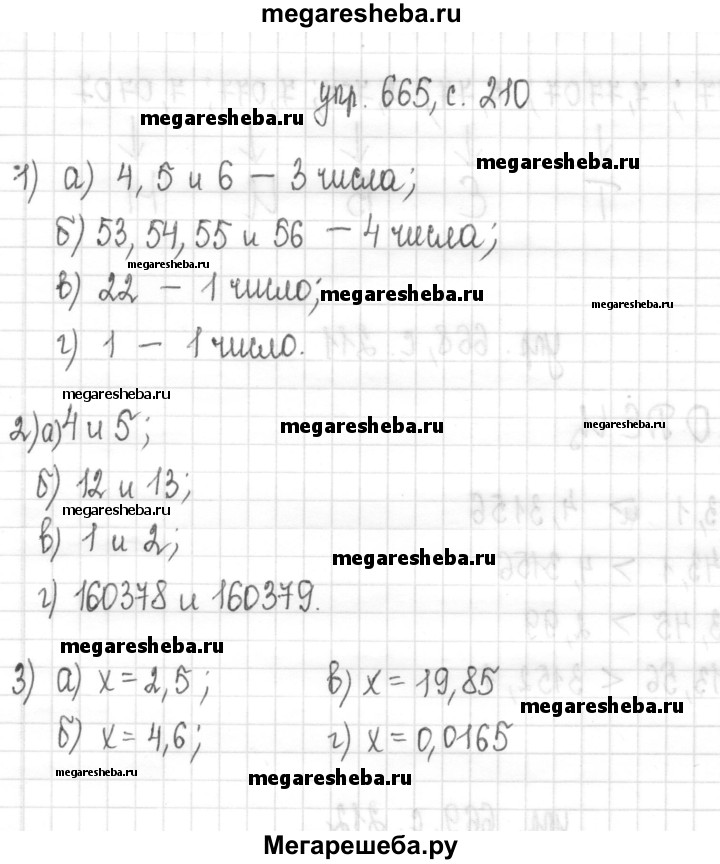 megaresheba.ru
упр. 665, с. 210
megaresheba.ru
megaresheba.ru
1) а) 4, 5 и 6 – 3 числа;
б) 53, 54, 55 и 56 – 4 числа;
megaresheba.ru
в) 22 – 1 число;
megaresheba.ru
megaresheba.ru
г) 1 – 1 число.
megaresheba.ru
2) а) 4 и 5;
megaresheba.ru
megaresheba.ru
б) 12 и 13;
megaresheba.ru
в) 1 и 2;
megaresheba.ru
г) 160378 и 160379.
megaresheba.ru
3) а) x = 2,5; в) x = 19,85
megaresheba.ru
б) x = 4,6; г) x = 0,0165
megaresheba.ru
megaresheba.ru
Мегарешеба.ру